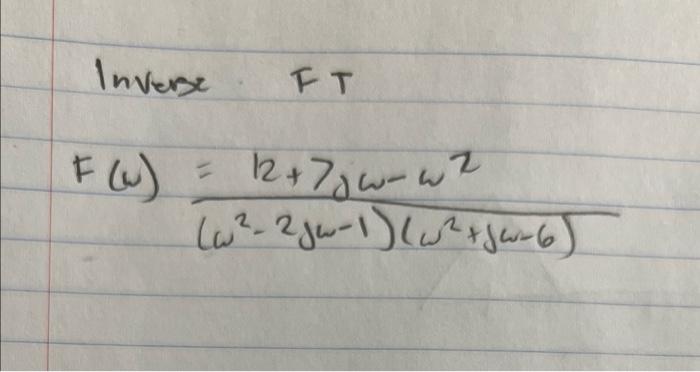 Inverse FT
F(ω) = 12+7jω-ω²
(ω²-2jω-1)(ω²+jω-6)